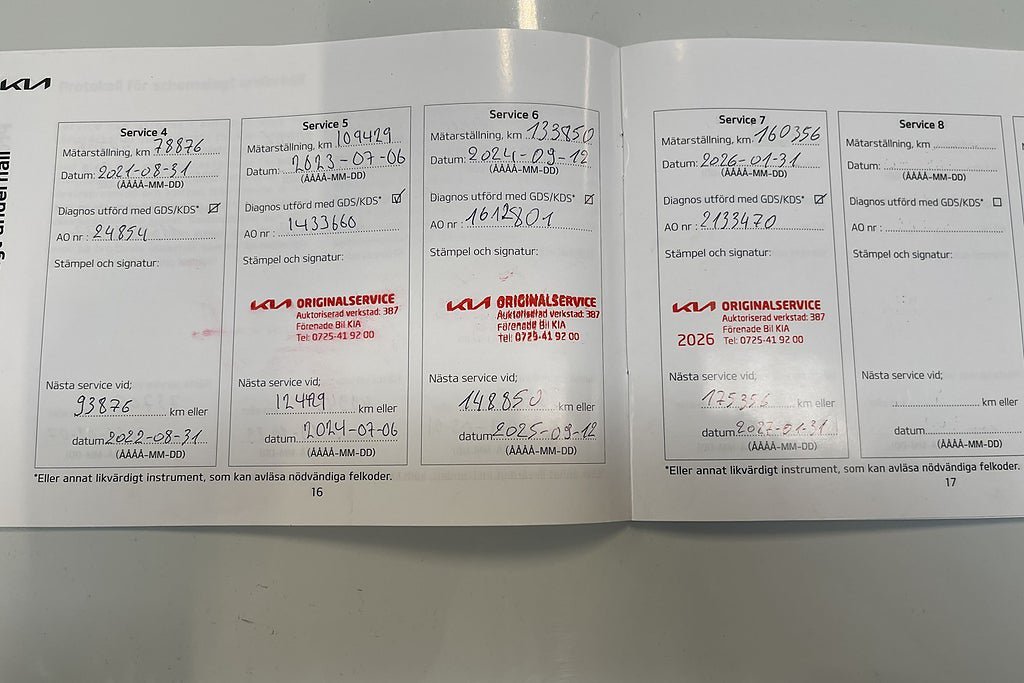 KIA
Service 4
Mätarställning, km 78876
Datum: 2021-08-31
(ÅÅÅÅ-MM-DD)
Diagnos utförd med GDS/KDS*
AO nr : 24854
Stämpel och signatur:
Nästa service vid;
93876 km eller
datum 2022-08-31
(ÅÅÅÅ-MM-DD)
Service 5
Mätarställning, km 109429
Datum: 2023-07-06
(ÅÅÅÅ-MM-DD)
Diagnos utförd med GDS/KDS*
AO nr : 1433660
Stämpel och signatur:
KIA ORIGINALSERVICE
Auktoriserad verkstad: 387
Förenade Bil KIA
Tel: 0725-41 92 00
Nästa service vid;
12429 km eller
datum 2024-07-06
(ÅÅÅÅ-MM-DD)
Service 6
Mätarställning, km 133850
Datum: 2024-09-12
(ÅÅÅÅ-MM-DD)
Diagnos utförd med GDS/KDS*
AO nr : 1612801
Stämpel och signatur:
KIA ORIGINALSERVICE
Auktoriserad verkstad: 387
Förenade Bil KIA
Tel: 0725-41 92 00
Nästa service vid;
148850 km eller
datum 2025-09-12
(ÅÅÅÅ-MM-DD)
*Eller annat likvärdigt instrument, som kan avläsa nödvändiga felkoder.
16
Service 7
Mätarställning, km 160356
Datum: 2026-01-31
(ÅÅÅÅ-MM-DD)
Diagnos utförd med GDS/KDS*
AO nr : 2133470
Stämpel och signatur:
KIA ORIGINALSERVICE
Auktoriserad verkstad: 387
Förenade Bil KIA
2026 Tel: 0725-41 92 00
Nästa service vid;
175356 km eller
datum 2027-01-31
(ÅÅÅÅ-MM-DD)
Service 8
Mätarställning, km
Datum:
(ÅÅÅÅ-MM-DD)
Diagnos utförd med GDS/KDS*
AO nr :
Stämpel och signatur:
Nästa service vid;
km eller
datum
(ÅÅÅÅ-MM-DD)
*Eller annat likvärdigt instrument, som kan avläsa nödvändiga felkoder.
17